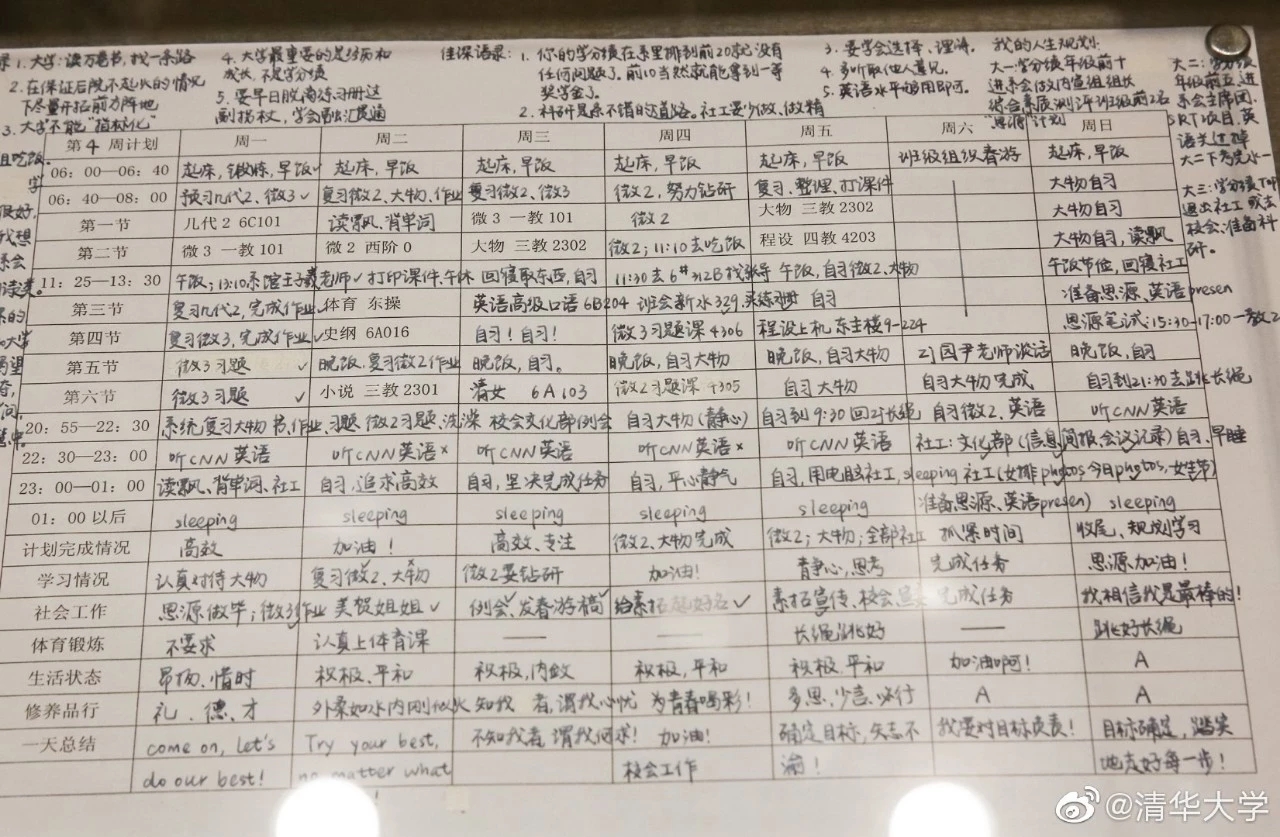 1. 大学：读万卷书，找一条路
2. 在保证后院不起火的情况
下尽量开拓前方阵地
3. 大学不能"指标化"
4. 大学最重要的是经历和
成长，不是学分绩
5. 要早日脱离练习册这
副拐杖，学会融汇贯通
佳琛语录：1. 你的学分绩在系里排到前20就没有
任何问题了，前10当然就能拿到一等
奖学金了。
2. 科研是条不错的道路。社工要少做、做精
3. 要学会选择、理清。
4. 多听取他人意见。
5. 英语水平够用即可。
我的人生规划：
大一：学分绩年级前十
进系会做文宣组组长
综合素质测评班级前2名
"思源"计划
大二：学分绩
年级前五，进
系会主席团，
SRT项目，英
语关过掉
大三：学分绩Top
退出社工 或去
校会；准备科
研。
第 4 周计划 周一 周二 周三 周四 周五 周六 周日
06：00—06：40 起床，锻炼，早饭✓ 起床，早饭 起床，早饭 起床，早饭 起床，早饭 班级组织春游 起床，早饭
06：40—08：00 预习几代2、微3 ✓ 复习微2、大物、作业 复习微2、微3 微2，努力钻研 复习、整理、打课件 大物自习
第一节 几代 2 6C101 读飘、背单词 微 3 一教 101 微2 大物 三教 2302 大物自习
第二节 微 3 一教 101 微 2 西阶 0 大物 三教 2302 微2；11:10去吃饭 程设 四教 4203 大物自习，读飘
11：25—13：30 午饭；13:10系馆王子羲老师✓ 打印课件、午休 回寝取东西，自习 11:30去6#312B找 午饭，自习微2、大物 午饭节位，回寝社工
第三节 复习几代2，完成作业✓ 体育 东操 英语高级口语 6B204 班会新水329， 自习 准备思源、英语presen
第四节 复习微3，完成作业✓ 史纲 6A016 自习！自习！ 微3习题课 4306 程设上机 东主楼9-224 思源笔试：15:30-17:00 一教2
第五节 微3习题 ✓ 晚饭、复习微2作业 晚饭，自习。 晚饭，自习大物 晚饭、自习大物 回尹老师谈话 晚饭，自习
第六节 微3习题 ✓ 小说 三教 2301 清女 6A103 微2习题课 4305 自习大物 自习大物完成 自习到21:30去跳长绳
20：55—22：30 系统复习大物书、作业、习题 微2习题、洗澡 校会文化部例会 自习大物（静心） 自习到9:30回21长绳 自习微2、英语 听CNN英语
22：30—23：00 听CNN英语 听CNN英语× 听CNN英语 听CNN英语× 听CNN英语 社工：文化部（信息简报，会议记录） 自习、早睡
23：00—01：00 读飘、背单词、社工 自习，追求高效 自习，坚决完成任务 自习，平心静气 自习，用电脑社工，sleeping 社工（女排photos，今日photos，女生节）
01：00 以后 sleeping sleeping sleeping sleeping sleeping 准备思源、英语presen） sleeping
计划完成情况 高效 加油！ 高效、专注 微2、大物完成 微2；大物；全部社工 抓紧时间 收尾、规划学习
学习情况 认真对待大物 复习微2、大物 微2要钻研 加油！ 静心，思考 完成任务 思源、加油！
社会工作 思源做毕；微3作业 美贺姐姐 ✓ 例会、发春游稿 给素拓起好名 ✓ 素拓宣传、校会 完成任务 我相信我是最棒的！
体育锻炼 不要求 认真上体育课 —— —— 长绳跳好 —— 跳好长绳
生活状态 昂扬、惜时 积极、平和 积极，内敛 积极、平和 积极、平和 加油啊！ A
修养品行 礼、德、才 外柔如水内刚似火 知我者，谓我心忧 为青春喝彩！ 多思、少言、必行 A A
一天总结 come on, let's Try your best, 不知我者，谓我何求！ 加油！ 确定目标，矢志不 我要对目标负责！ 目标确定，踏实
do our best! no matter what 校会工作 渝！ 地走好每一步！
@清华大学